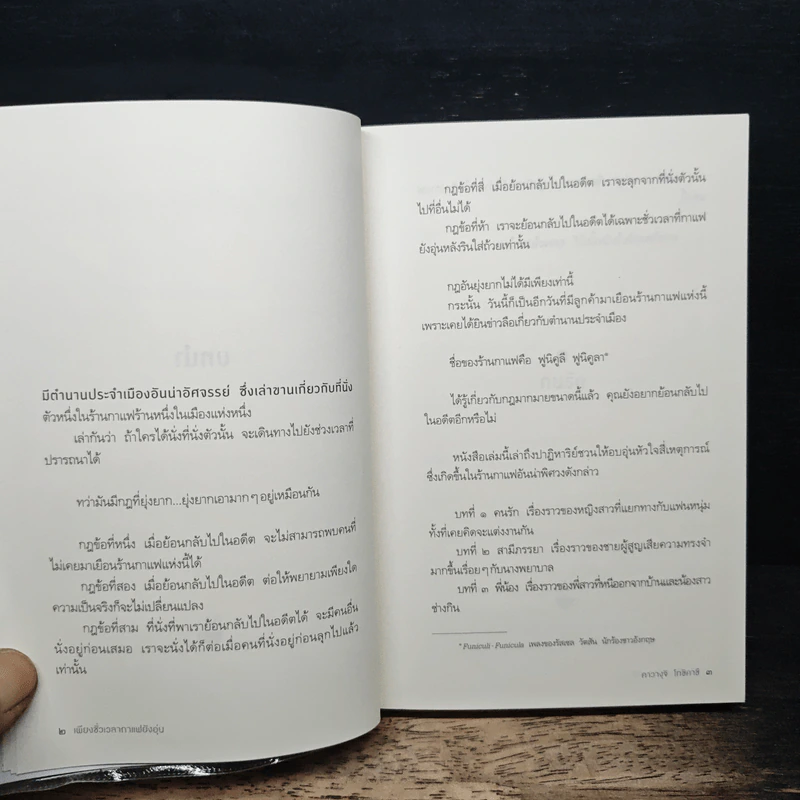 มีตำนานประจำเมืองอันน่าอัศจรรย์ ซึ่งเล่าขานเกี่ยวกับที่นั่ง
ตัวหนึ่งในร้านกาแฟร้านหนึ่งในเมืองแห่งหนึ่ง
เล่ากันว่า ถ้าใครได้นั่งที่นั่งตัวนั้น จะเดินทางไปยังช่วงเวลาที่
ปรารถนาได้
ทว่ามันมีกฎที่ยุ่งยาก...ยุ่งยากเอามากๆ อยู่เหมือนกัน
กฎข้อที่หนึ่ง เมื่อย้อนกลับไปในอดีต จะไม่สามารถพบคนที่
ไม่เคยมาเยือนร้านกาแฟแห่งนี้ได้
กฎข้อที่สอง เมื่อย้อนกลับไปในอดีต ต่อให้พยายามเพียงใด
ความเป็นจริงก็จะไม่เปลี่ยนแปลง
กฎข้อที่สาม ที่นั่งที่พาเราย้อนกลับไปในอดีตได้ จะมีคนอื่น
นั่งอยู่ก่อนเสมอ เราจะนั่งได้ก็ต่อเมื่อคนที่นั่งอยู่ก่อนลุกไปแล้ว
เท่านั้น
๒ เพียงชั่วเวลากาแฟยังอุ่น
กฎข้อที่สี่ เมื่อย้อนกลับไปในอดีต เราจะลุกจากที่นั่งตัวนั้น
ไปที่อื่นไม่ได้
กฎข้อที่ห้า เราจะย้อนกลับไปในอดีตได้เฉพาะชั่วเวลาที่กาแฟ
ยังอุ่นหลังรินใส่ถ้วยเท่านั้น
กฎอันยุ่งยากไม่ได้มีเพียงเท่านี้
กระนั้น วันนี้ก็เป็นอีกวันที่มีลูกค้ามาเยือนร้านกาแฟแห่งนี้
เพราะเคยได้ยินข่าวลือเกี่ยวกับตำนานประจำเมือง
ชื่อของร้านกาแฟคือ ฟูนิคูลี ฟูนิคูลา*
ได้รู้เกี่ยวกับกฎมากมายขนาดนี้แล้ว คุณยังอยากย้อนกลับไป
ในอดีตอีกหรือไม่
หนังสือเล่มนี้เล่าถึงปาฏิหาริย์ชวนให้อบอุ่นหัวใจสี่เหตุการณ์
ซึ่งเกิดขึ้นในร้านกาแฟอันน่าพิศวงดังกล่าว
บทที่ ๑ คนรัก เรื่องราวของหญิงสาวที่แยกทางกับแฟนหนุ่ม
ทั้งที่เคยคิดจะแต่งงานกัน
บทที่ ๒ สามีภรรยา เรื่องราวของชายผู้สูญเสียความทรงจำ
มากขึ้นเรื่อยๆ กับนางพยาบาล
บทที่ ๓ พี่น้อง เรื่องราวของพี่สาวที่หนีออกจากบ้านและน้องสาว
ช่างกิน
* Funiculì - Funiculà เพลงของรัสเซล วัตสัน นักร้องชาวอังกฤษ
คาวางุจิ โทชิคาซึ ๓